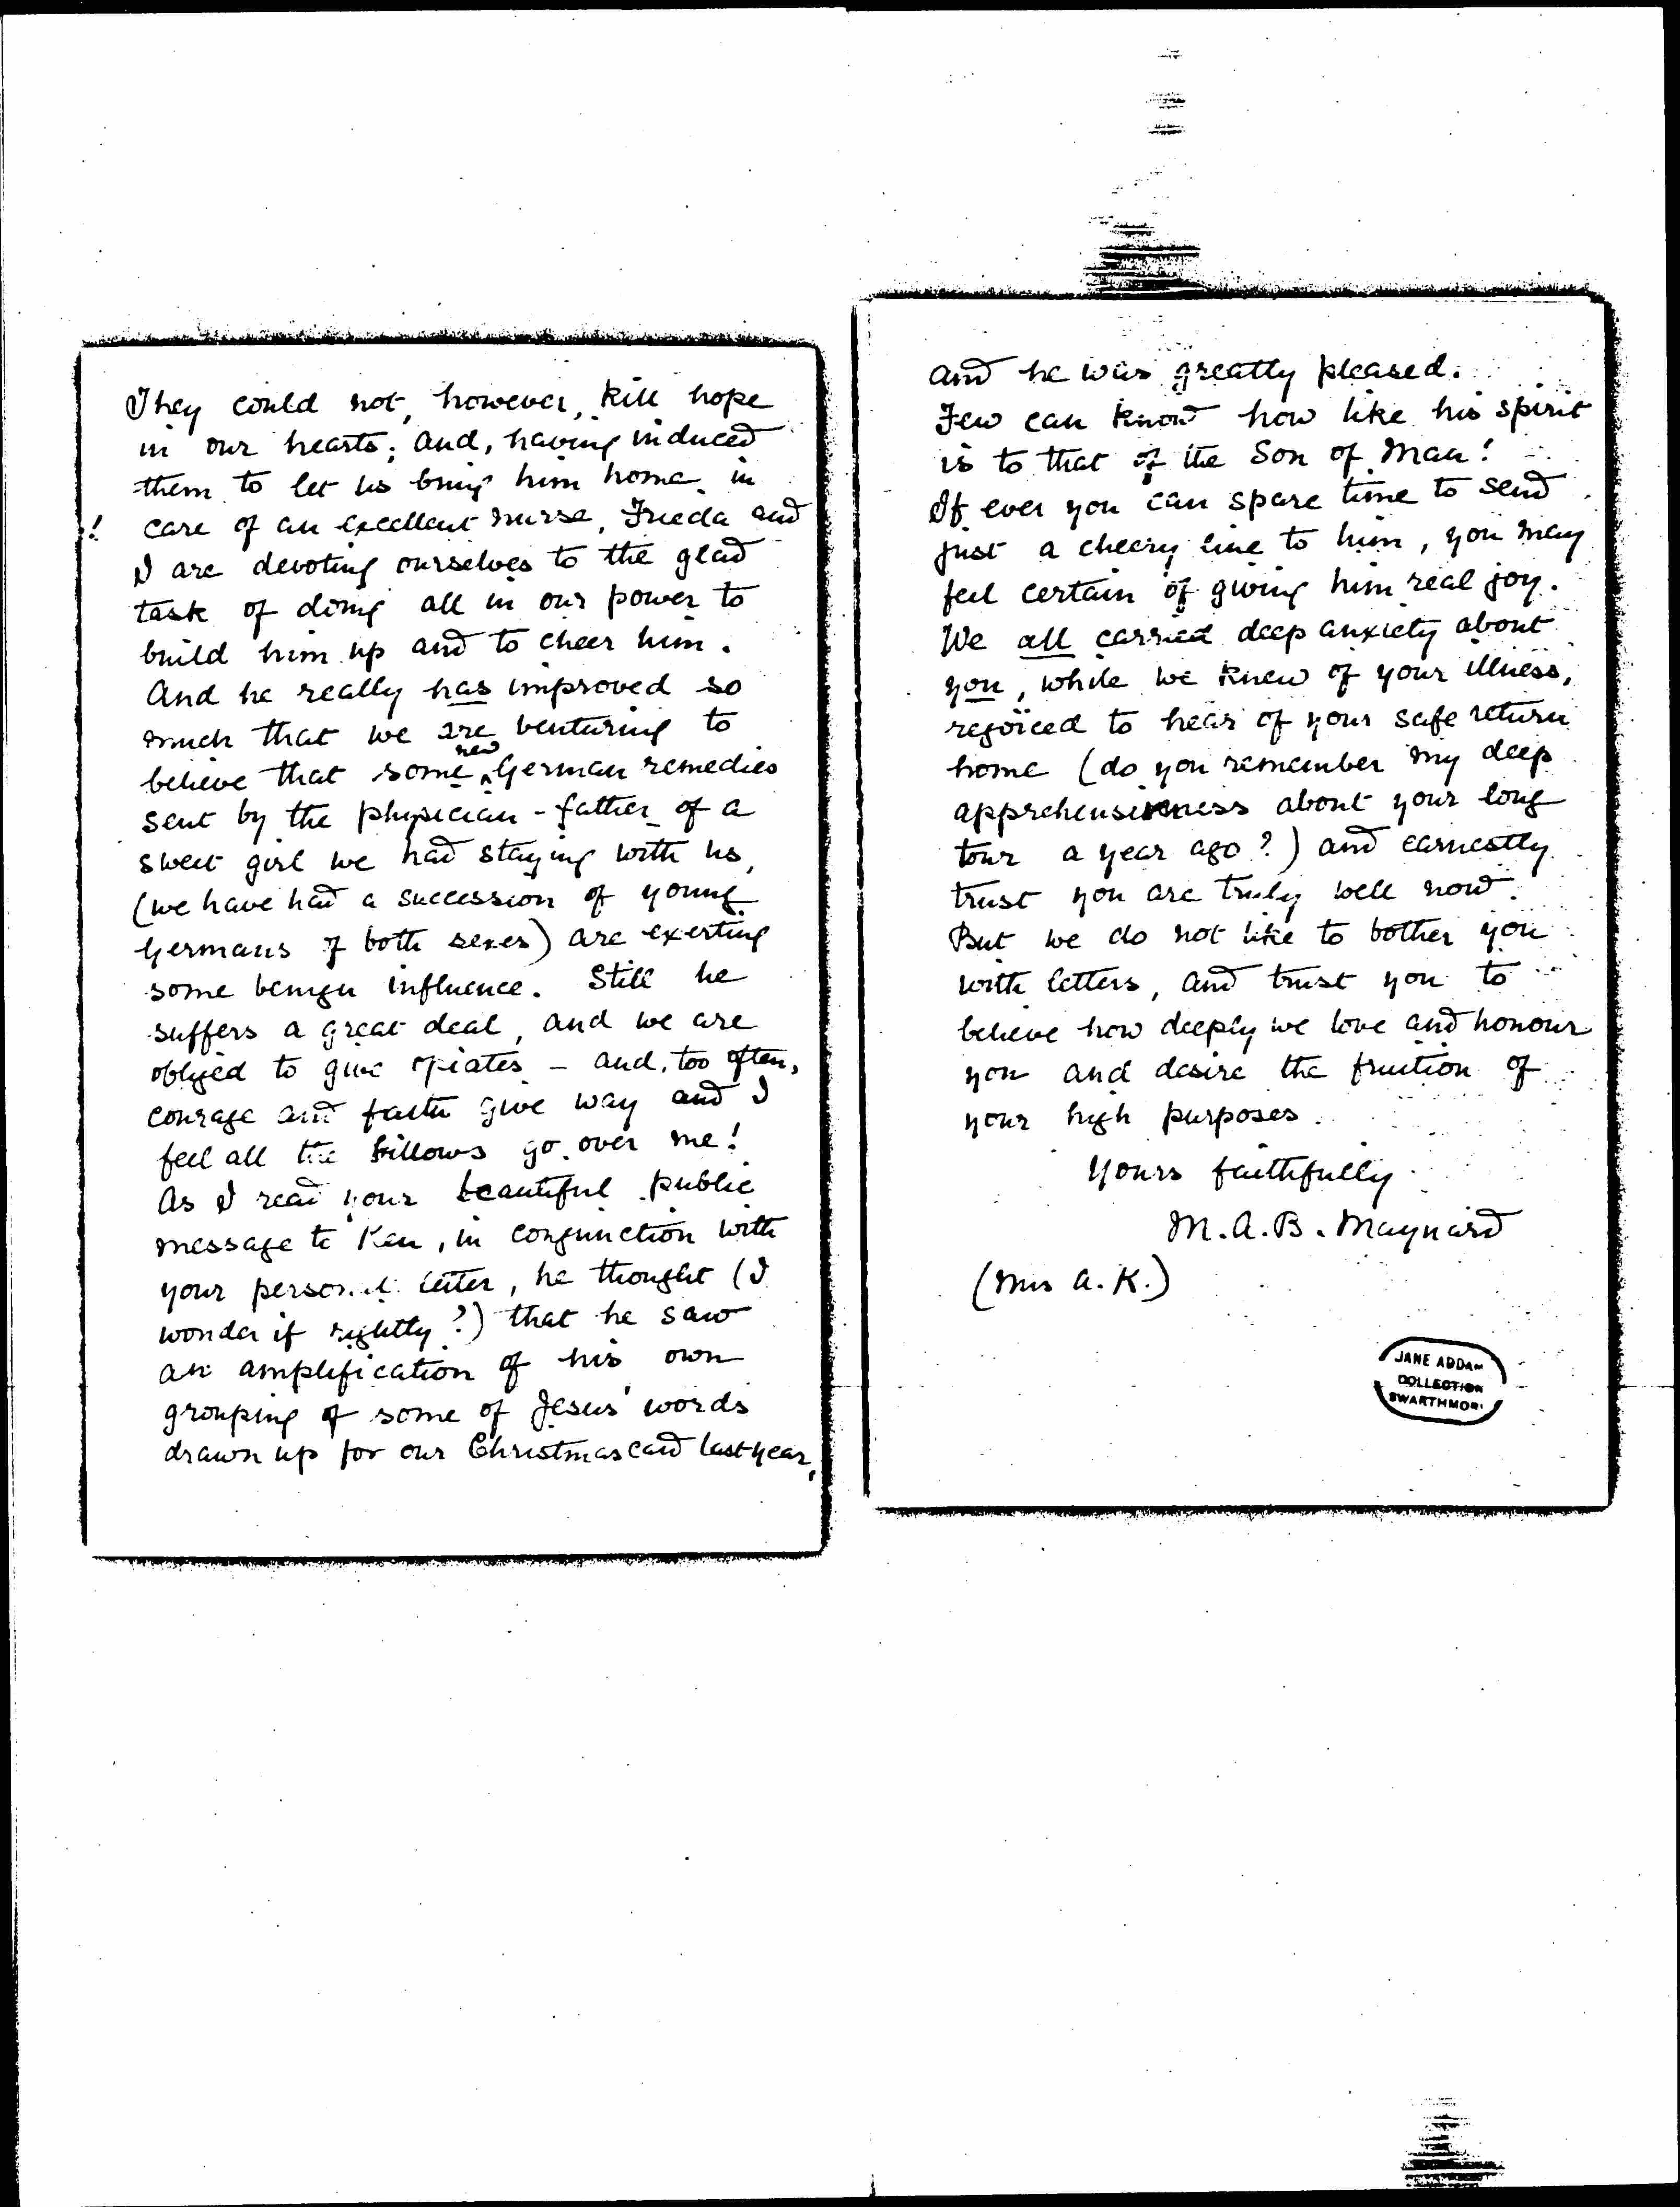 They could not, however, kill hope
in our hearts; and, having induced
them to let us bring him home in
! care of an excellent nurse, Frieda and
I are devoting ourselves to the glad
task of doing all in our power to
build him up and to cheer him.
And he really has improved so
much that we are venturing to
believe that some new German remedies
sent by the physician-father of a
sweet girl we had staying with us,
(we have had a succession of young
Germans of both sexes) are exerting
some benign influence. Still he
suffers a great deal, and we are
obliged to give opiates – and, too often,
courage and faith give way and I
feel all the billows go over me!
As I read your beautiful public
message to Ken, in conjunction with
your personal letter, he thought (I
wonder if rightly?) that he saw
an amplification of his own
grouping of some of Jesus' words
drawn up for our Christmas card last year,
and he was greatly pleased.
Few can know how like his spirit
is to that of the Son of Man!
If ever you can spare time to send
just a cheery line to him, you may
feel certain of giving him real joy.
We all carried deep anxiety about
you, while we knew of your illness,
rejoiced to hear of your safe return
home (do you remember my deep
apprehensiveness about your long
tour a year ago?) and earnestly
trust you are truly well now.
But we do not like to bother you
with letters, and trust you to
believe how deeply we love and honour
you and desire the fruition of
your high purposes.
Yours faithfully
M.A.B. Maynard
(Mrs A.K.)
JANE ADDAM
COLLECTION
SWARTHMOR